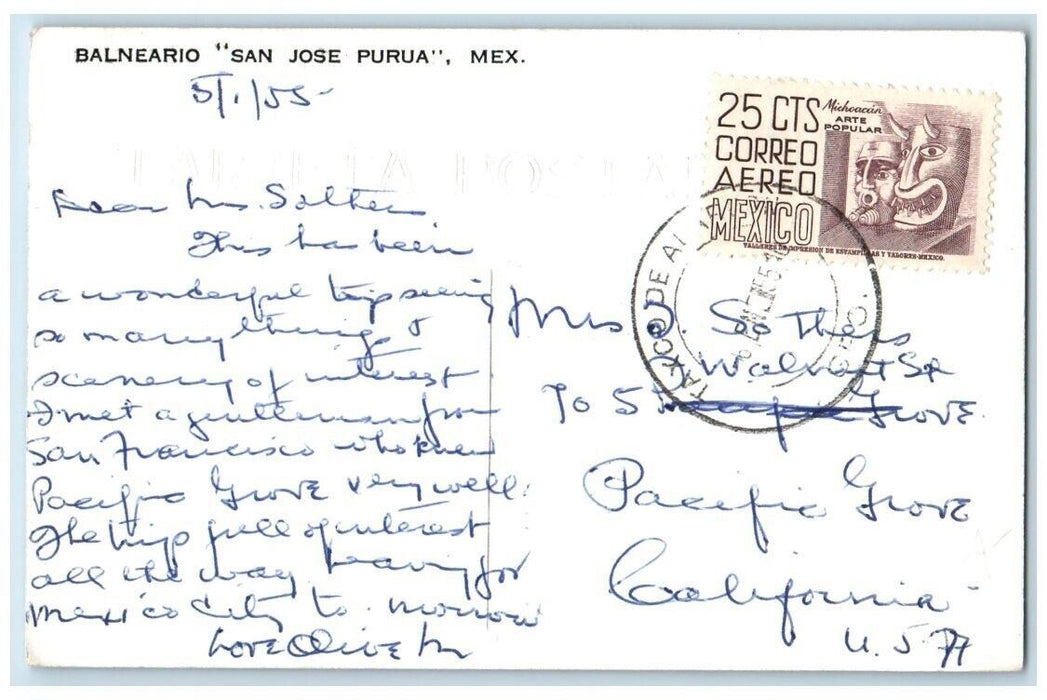 BALNEARIO "SAN JOSE PURUA", MEX.
5/1/55-
TARJETA POSTAL
Dear Mrs. Sothers
This has been
a wonderful trip seeing
so many things &
scenery of interest
I met a gentleman from
San Francisco who knew
Pacific Grove very well.
The trip full of interest
all the way leaving for
Mexico City to morrow
Love Olive M
25 CTS
CORREO
AEREO
MEXICO
Michoacán
ARTE
POPULAR
TALLERES DE IMPRESION DE ESTAMPILLAS Y VALORES-MEXICO.
TAXCO DE AL GRO.
Mrs Sothers
Walnut St
705 Grove
Pacific Grove
California
U.S.A